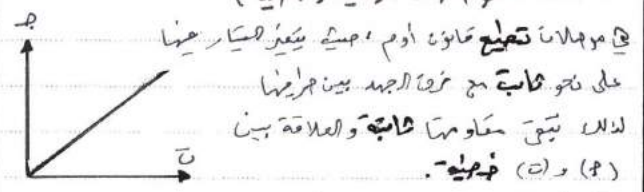 هي موصلات تطيع قانون أوم ، حيث يتغير التيار فيها
على نحو ثابت مع فرق الجهد بين طرفيها
لذلك تبقى مقاومتها ثابتة والعلاقة بين
(جـ) و (ت) خطية.
جـ
ت